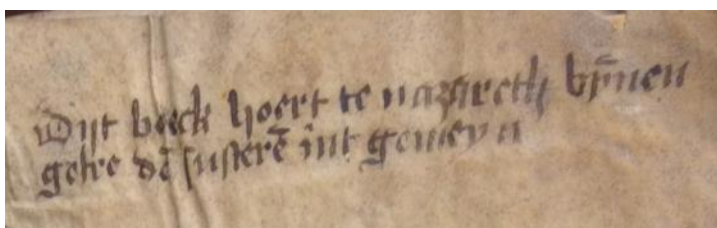 Dijt boeck hoert te nazareth bȳnen
gelre dē susterē int gemeyn